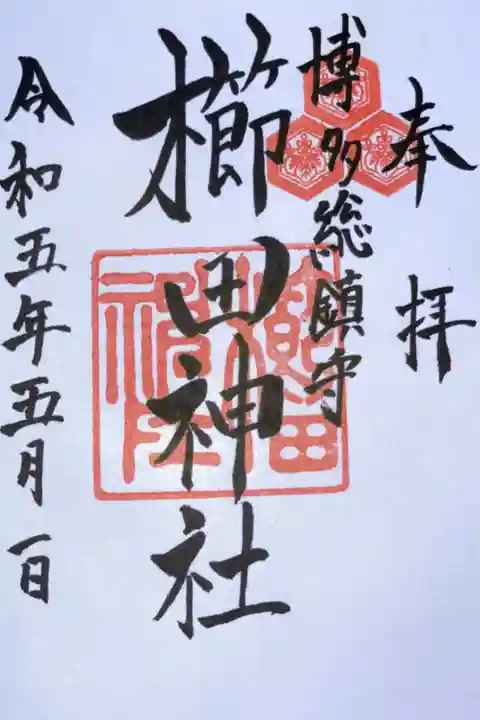 奉拝
博多総鎮守
櫛田神社
令和五年五月一日
櫛田
神社